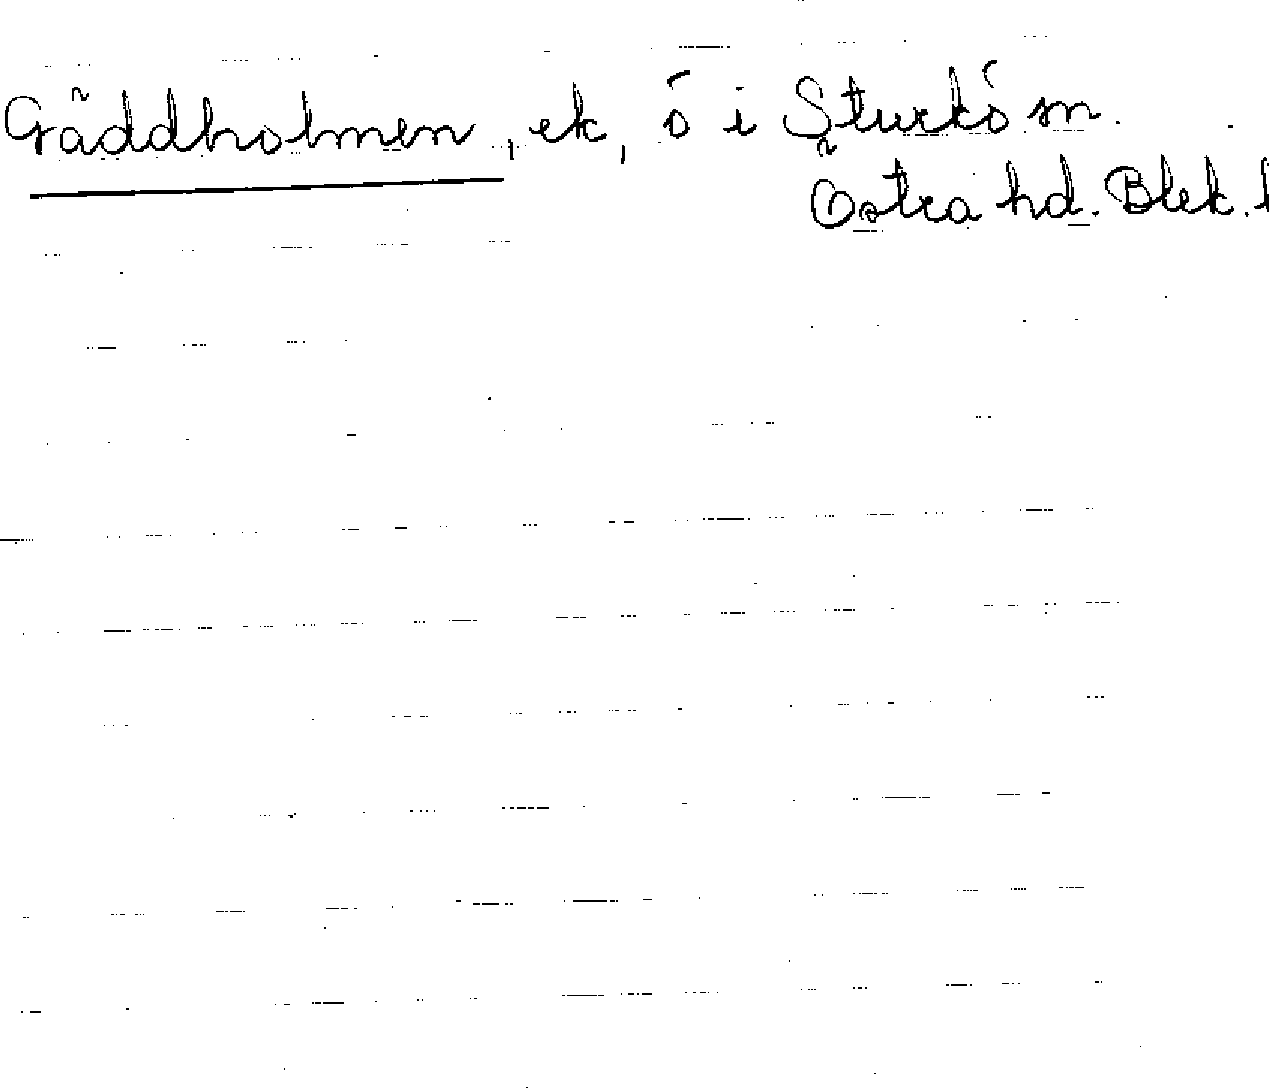 Gäddholmen, ek, ö i Sturkö sn.
Östra hd. Blek. l